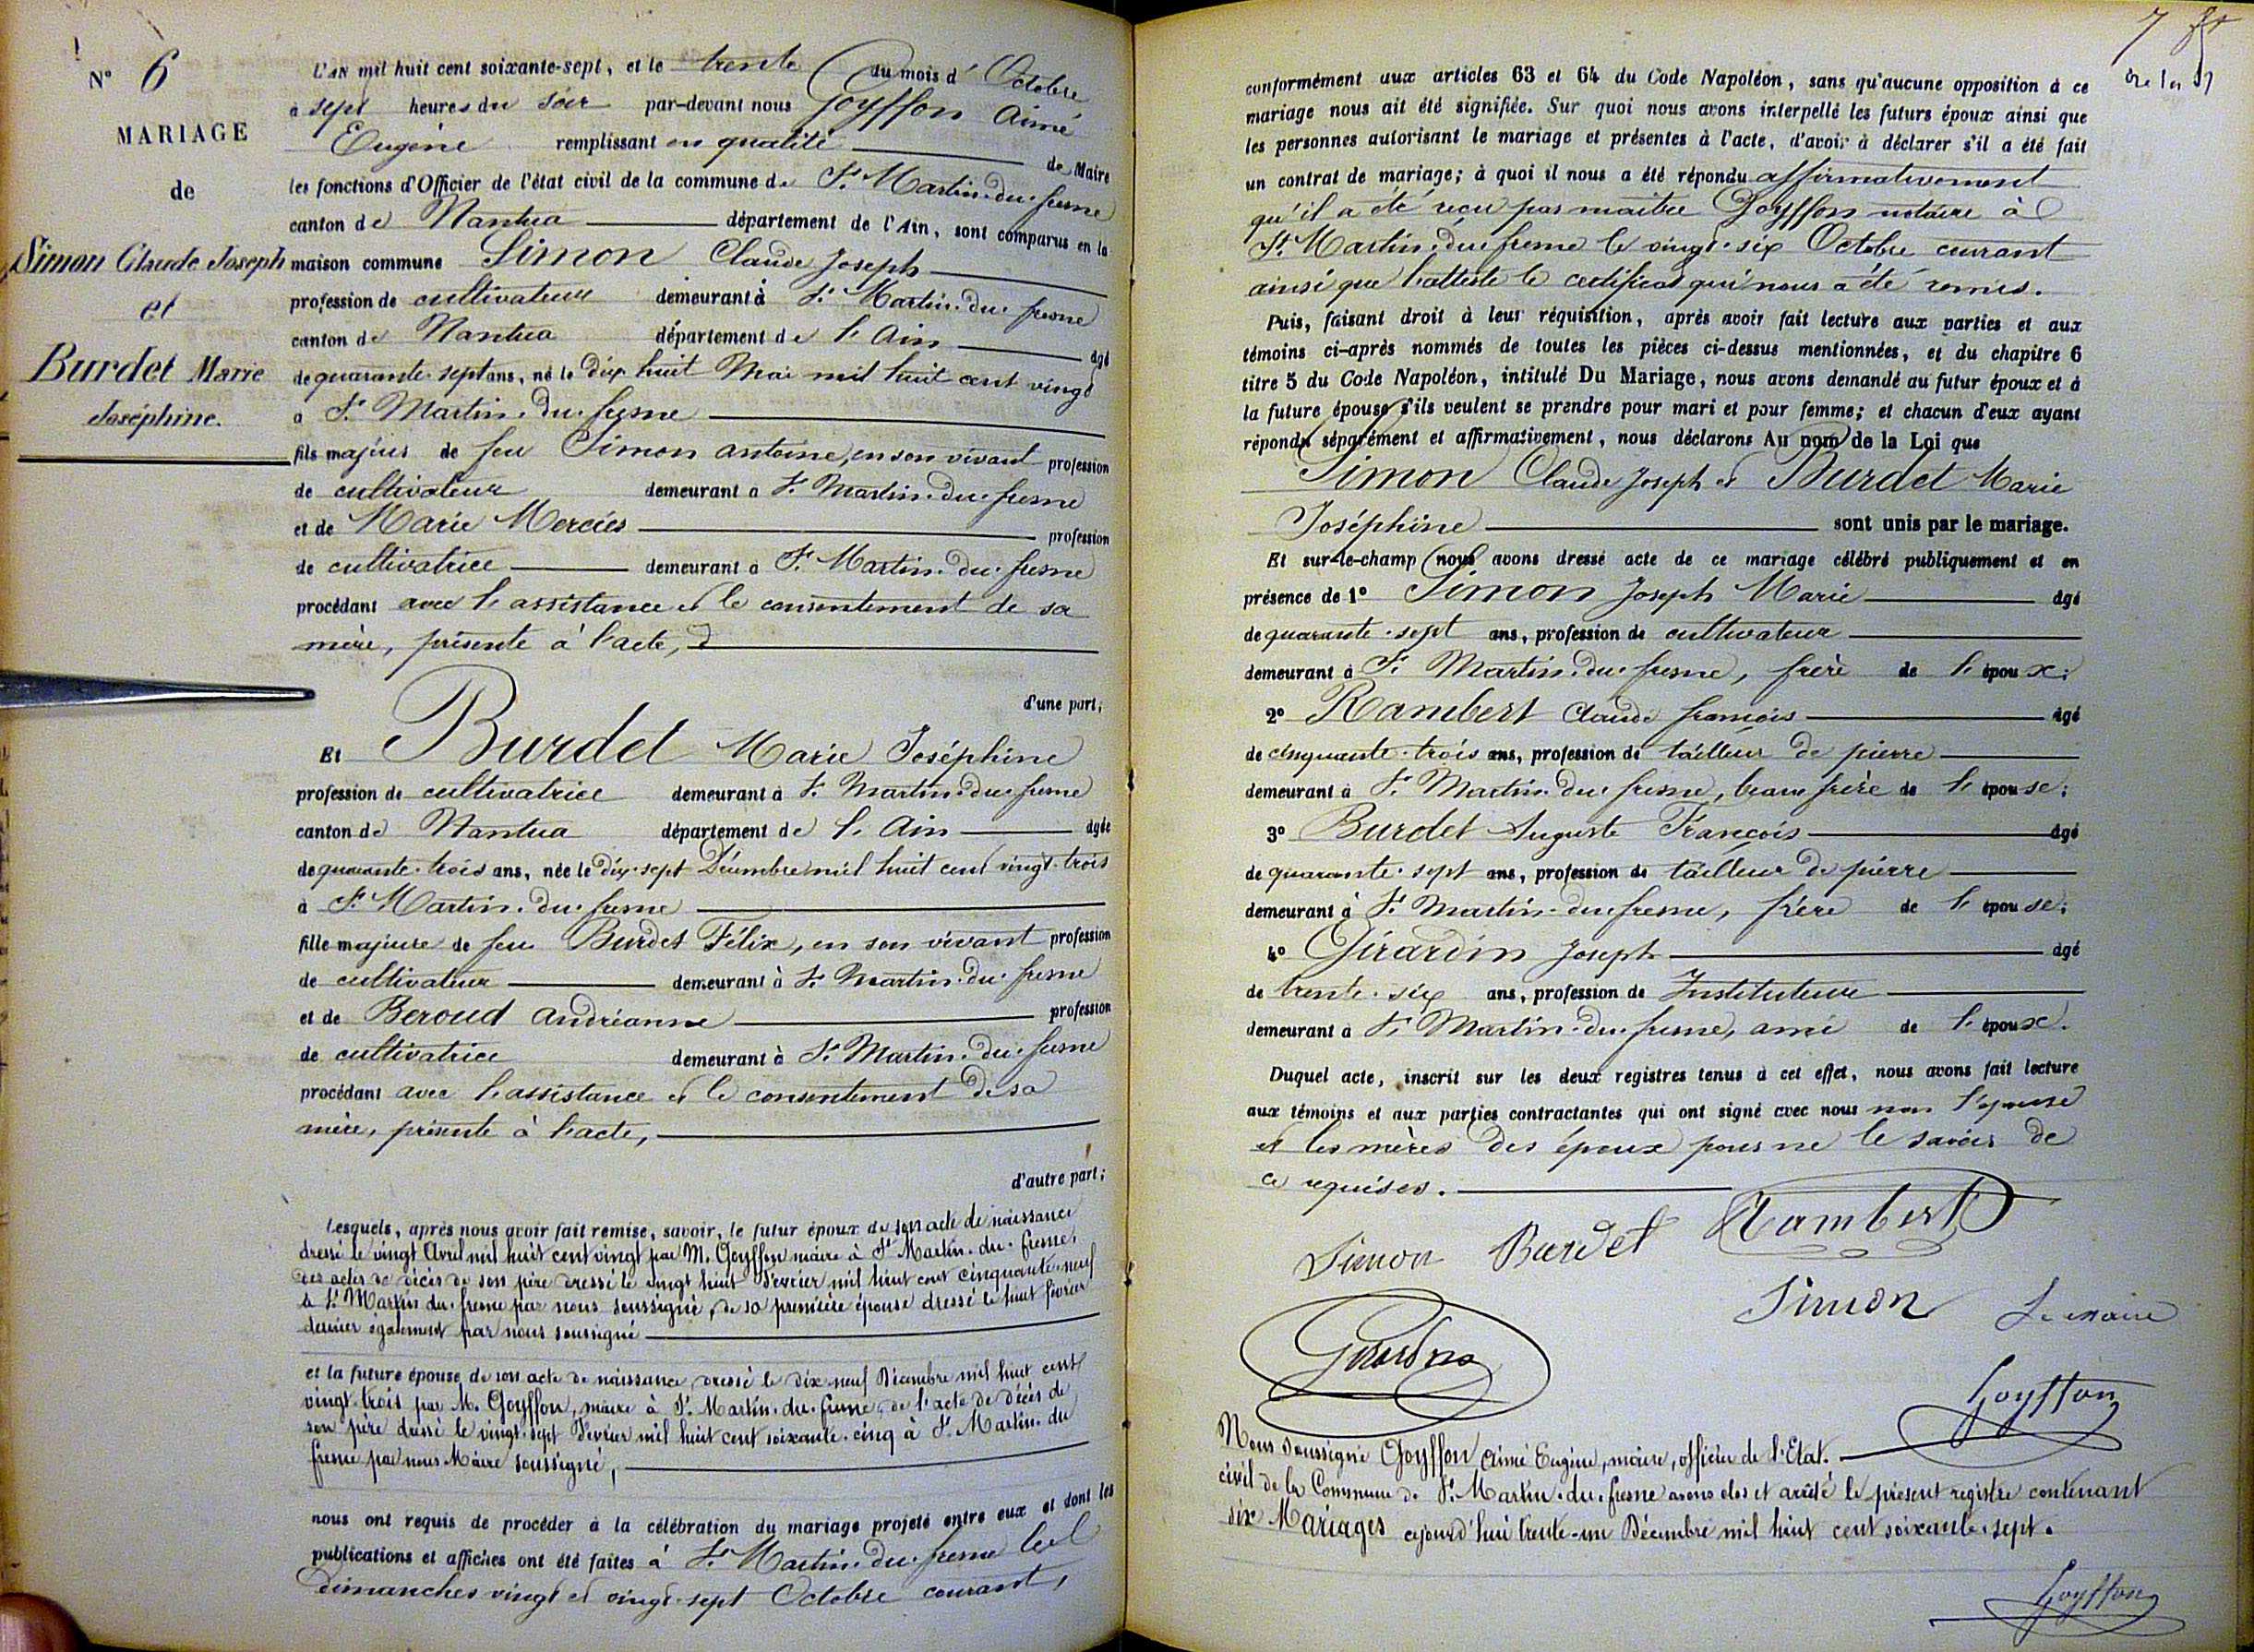 N° 6
MARIAGE
de
Simon Claude Joseph
et
Burdet Marie
Joséphine.
L'AN mil huit cent soixante-sept, et le trente du mois d' Octobre
à sept heures du soir par-devant nous Goyffon Aimé
Eugène remplissant en qualité de Maire
les fonctions d'Officier de l'état civil de la commune de St Martin-du-fresne
canton de Nantua département de l'Ain, sont comparus en la
maison commune Simon Claude Joseph
profession de cultivateur demeurant à St Martin-du-fresne
canton de Nantua département de l'Ain âgé
de quarante-sept ans, né le dix huit Mai mil huit cent vingt
à St Martin-du-fresne
fils majeur de feu Simon antoine, en son vivant profession
de cultivateur demeurant à St Martin-du-fresne
et de Marie Mercier profession
de cultivatrice demeurant à St Martin-du-fresne
procédant avec l'assistance et le consentement de sa
mère, présente à l'acte,
d'une part,
Et Burdet Marie Joséphine
profession de cultivatrice demeurant à St Martin-du-fresne
canton de Nantua département de l'Ain âgée
de quarante-trois ans, née le dix-sept Décembre mil huit cent vingt-trois
à St Martin-du-fresne
fille majeure de feu Burdet Félix, en son vivant profession
de cultivateur demeurant à St Martin-du-fresne
et de Beroud andréanne profession
de cultivatrice demeurant à St Martin-du-fresne
procédant avec l'assistance et le consentement de sa
mère, présente à l'acte,
d'autre part;
Lesquels, après nous avoir fait remise, savoir, le futur époux de son acte de naissance
dressé le vingt Avril mil huit cent vingt par M. Goyffon maire à St Martin-du-fresne,
des actes de décès de son père dressé le vingt huit Février mil huit cent cinquante-neuf
à St Martin du-fresne par nous soussigné, de sa première épouse dressé le huit février
dernier également par nous soussigné
et la future épouse de son acte de naissance dressé le dix-neuf Décembre mil huit cent
vingt-trois par M. Goyffon, maire à St Martin-du-fresne, de l'acte de décès de
son père dressé le vingt-sept Février mil huit cent soixante-cinq à St Martin-du
fresne par nous Maire soussigné,
nous ont requis de procéder à la célébration du mariage projeté entre eux et dont les
publications et affiches ont été faites à St Martin-du-fresne les
dimanches vingt et vingt-sept Octobre courant,
7
conformément aux articles 63 et 64 du Code Napoléon, sans qu'aucune opposition à ce
mariage nous ait été signifiée. Sur quoi nous avons interpellé les futurs époux ainsi que
les personnes autorisant le mariage et présentes à l'acte, d'avoir à déclarer s'il a été fait
un contrat de mariage; à quoi il nous a été répondu affirmativement
qu'il a été reçu par maître Goyffon notaire à
St Martin-du-fresne le vingt-six Octobre courant
ainsi que l'atteste le certificat qui nous a été remis.
Puis, faisant droit à leur réquisition, après avoir fait lecture aux parties et aux
témoins ci-après nommés de toutes les pièces ci-dessus mentionnées, et du chapitre 6
titre 5 du Code Napoléon, intitulé Du Mariage, nous avons demandé au futur époux et à
la future épouse s'ils veulent se prendre pour mari et pour femme; et chacun d'eux ayant
répondu séparément et affirmativement, nous déclarons Au nom de la Loi que
Simon Claude Joseph et Burdet Marie
Joséphine sont unis par le mariage.
Et sur-le-champ nous avons dressé acte de ce mariage célébré publiquement et en
présence de 1° Simon Joseph Marie âgé
de quarante-sept ans, profession de cultivateur
demeurant à St Martin-du-fresne, frère de l'époux;
2° Rambert Claude françois âgé
de cinquante-trois ans, profession de tailleur de pierre
demeurant à St Martin-du-fresne, beau frère de l'épouse;
3° Burdet Auguste François âgé
de quarante-sept ans, profession de tailleur de pierre
demeurant à St Martin-du-fresne, frère de l'épouse;
4° Girardin Joseph âgé
de trente-six ans, profession de Instituteur
demeurant à St Martin-du-fresne, ami de l'époux.
Duquel acte, inscrit sur les deux registres tenus à cet effet, nous avons fait lecture
aux témoins et aux parties contractantes qui ont signé avec nous non l'épouse
et les mères des époux pour ne le savoir de
ce requises.
Simon Burdet Rambert
Simon Le maire
Girardin
Goyffon
Nous soussigné Goyffon Aimé Eugène, maire, officier de l'Etat
civil de la Commune de St Martin-du-fresne avons clos et arrêté le présent registre contenant
six Mariages cejourd'hui trente-un Décembre mil huit cent soixante-sept.
Goyffon